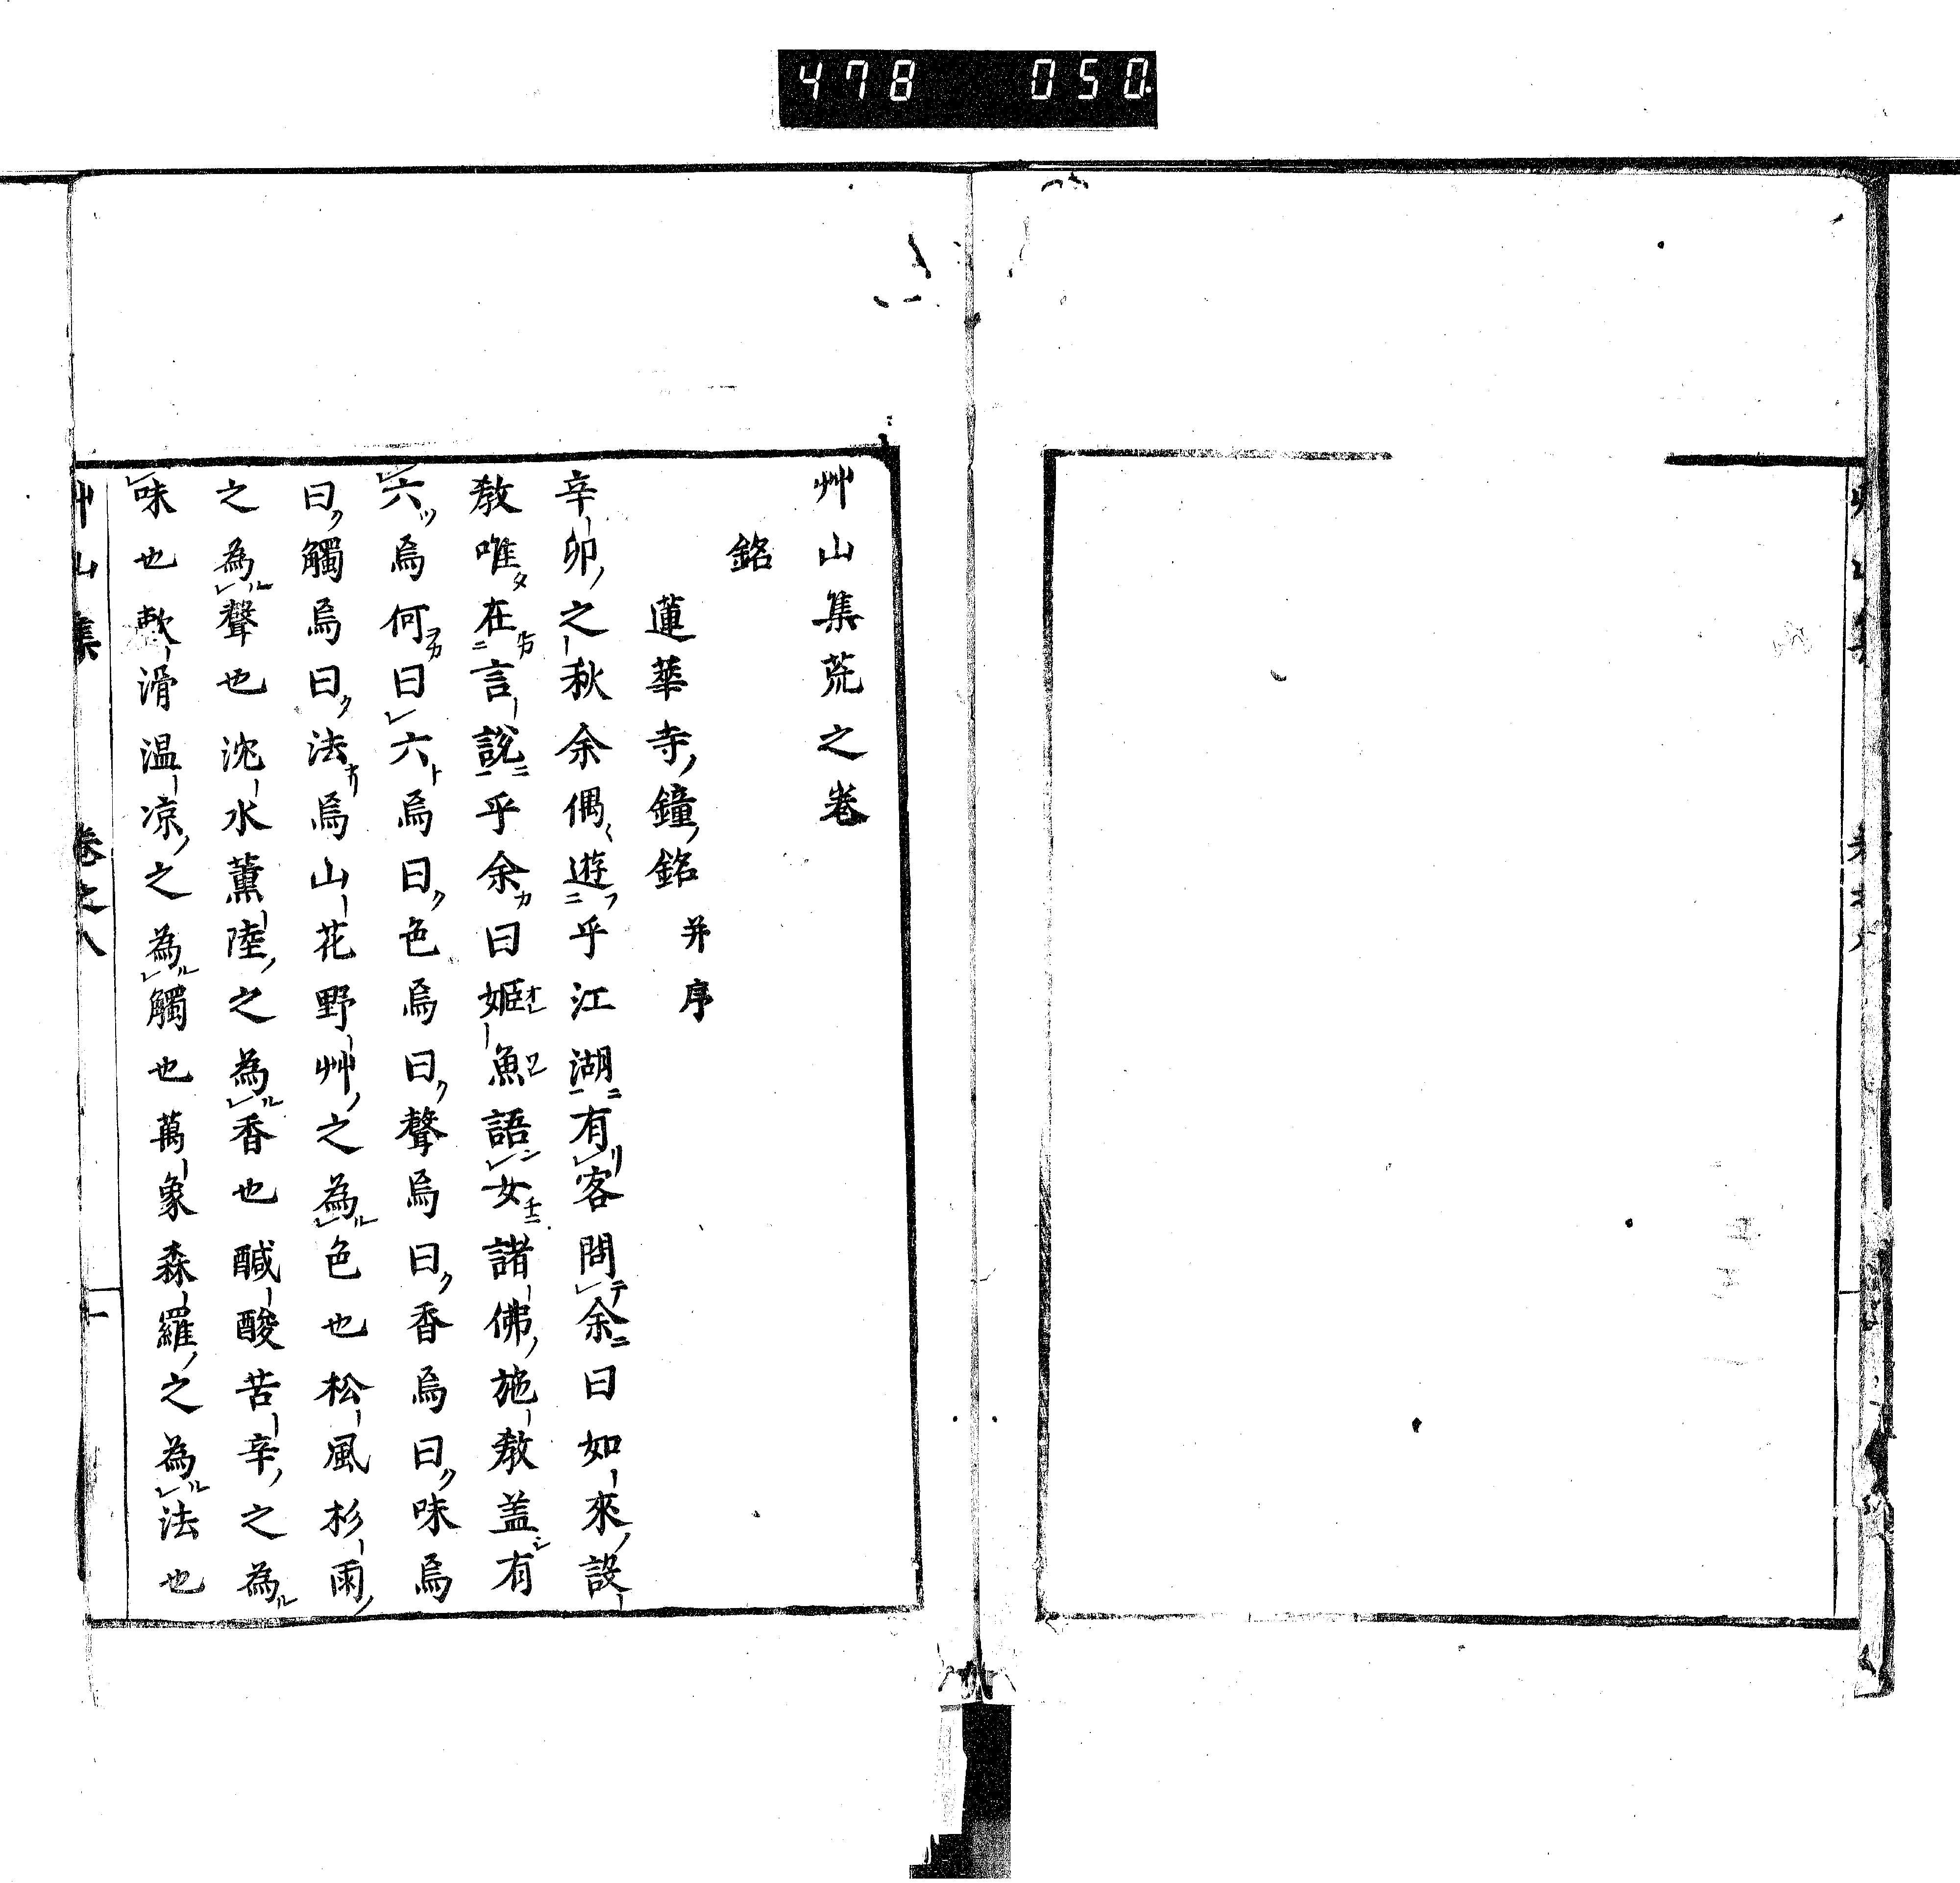 478 050
艸山集荒之卷
銘
蓮華寺鐘銘 并序
辛卯之秋余偶遊乎江湖有客問余曰如來設
教唯在言說乎余曰姬魚語女諸佛施教盖有
六焉何曰六焉曰色焉曰聲焉曰香焉曰味焉
曰觸焉曰法焉山花野艸之為色也松風杉雨
之為聲也沈水薰陸之為香也醎酸苦辛之為
味也軟滑温凉之為觸也萬象森羅之為法也
艸山集 卷之八 一